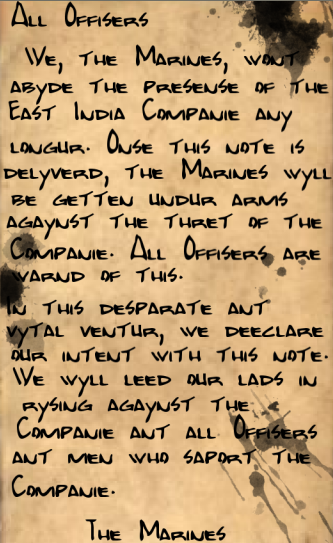 All Offisers
We, the Marines, wont
abyde the presense of the
East India Companie any
longur. Onse this note is
delyverd, the Marines wyll
be getten undur arms
agaynst the thret of the
Companie. All Offisers are
warnd of this.
In this desparate ant
vytal ventur, we deeclare
our intent with this note.
We wyll leed our lads in
rysing agaynst the
Companie ant all Offisers
ant men who saport the
Companie.
The Marines